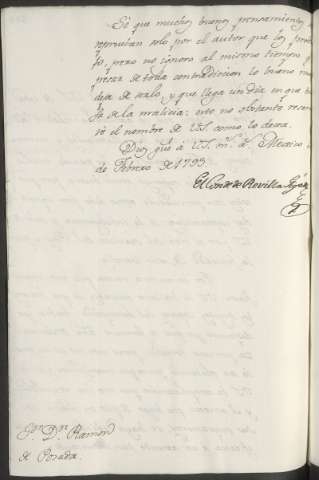 Sé que muchos buenos pensamientos se
reprueban solo por el autor que los produ
jo, pero no ignoro al mismo tiempo q
pesar de toda contradiccion lo bueno nun
deja de serlo, y que llega un dia en que
fa de la malicia: esto no obstante reser
ré el nombre de VS. como lo desea.
Dios gue á VS. ms. as. Mexico
de Febrero de 1793.
El Conde de Revilla Gigedo
Sor. Dn. Ramon
de Posada.